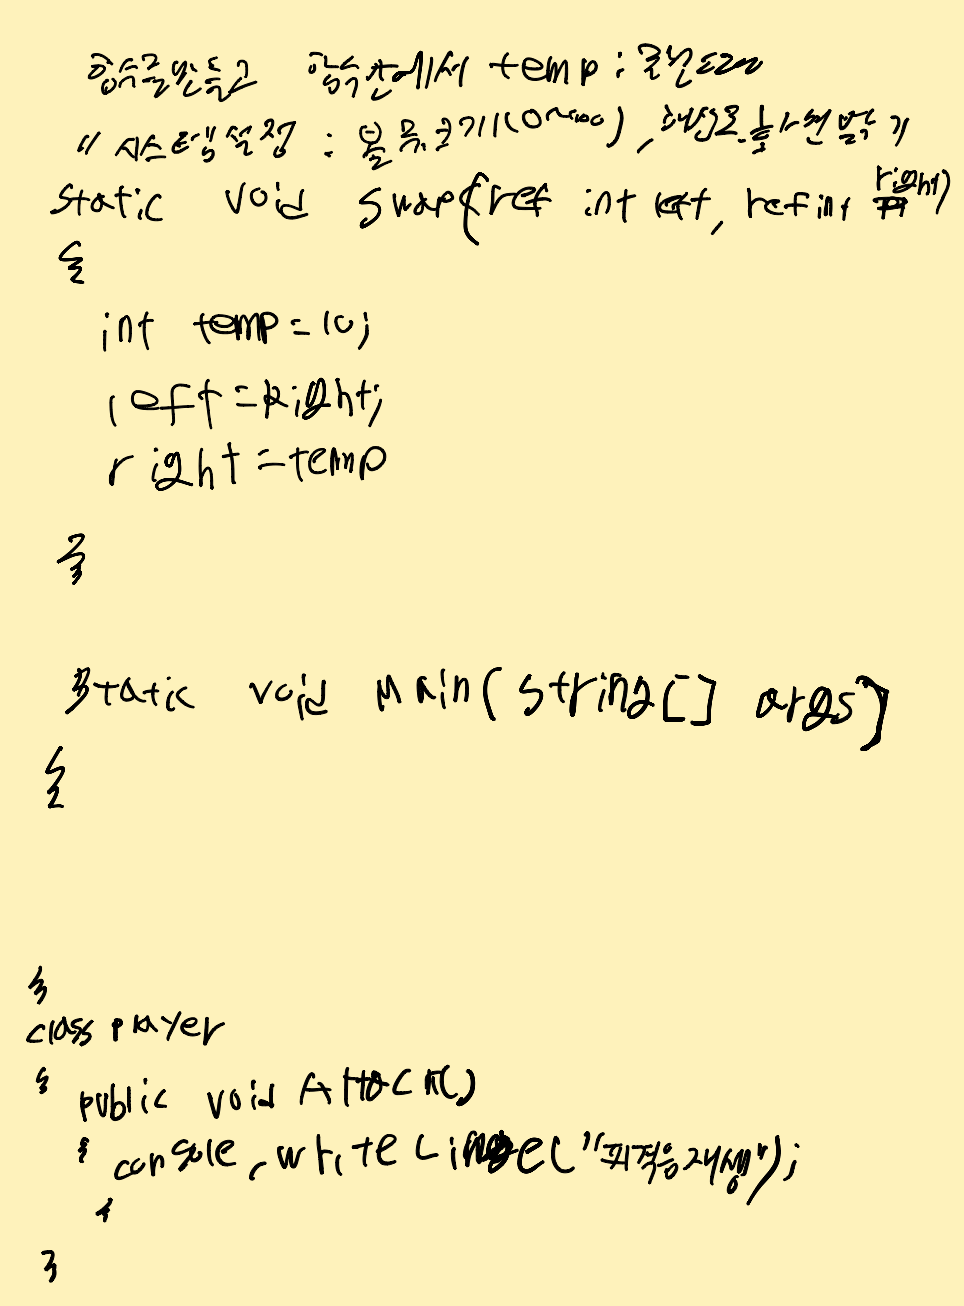 함수를만들고 함수안에서 temp :
// 시스템설정 : 볼륨크기(0~100), 해상도
static void swap(ref int left, ref int right)
{
int temp=10;
left=right;
right=temp
}
static void Main(string[] args)
{
}
class player
{
public void Attack()
{ console.writeLine("피격음재생");
}
}